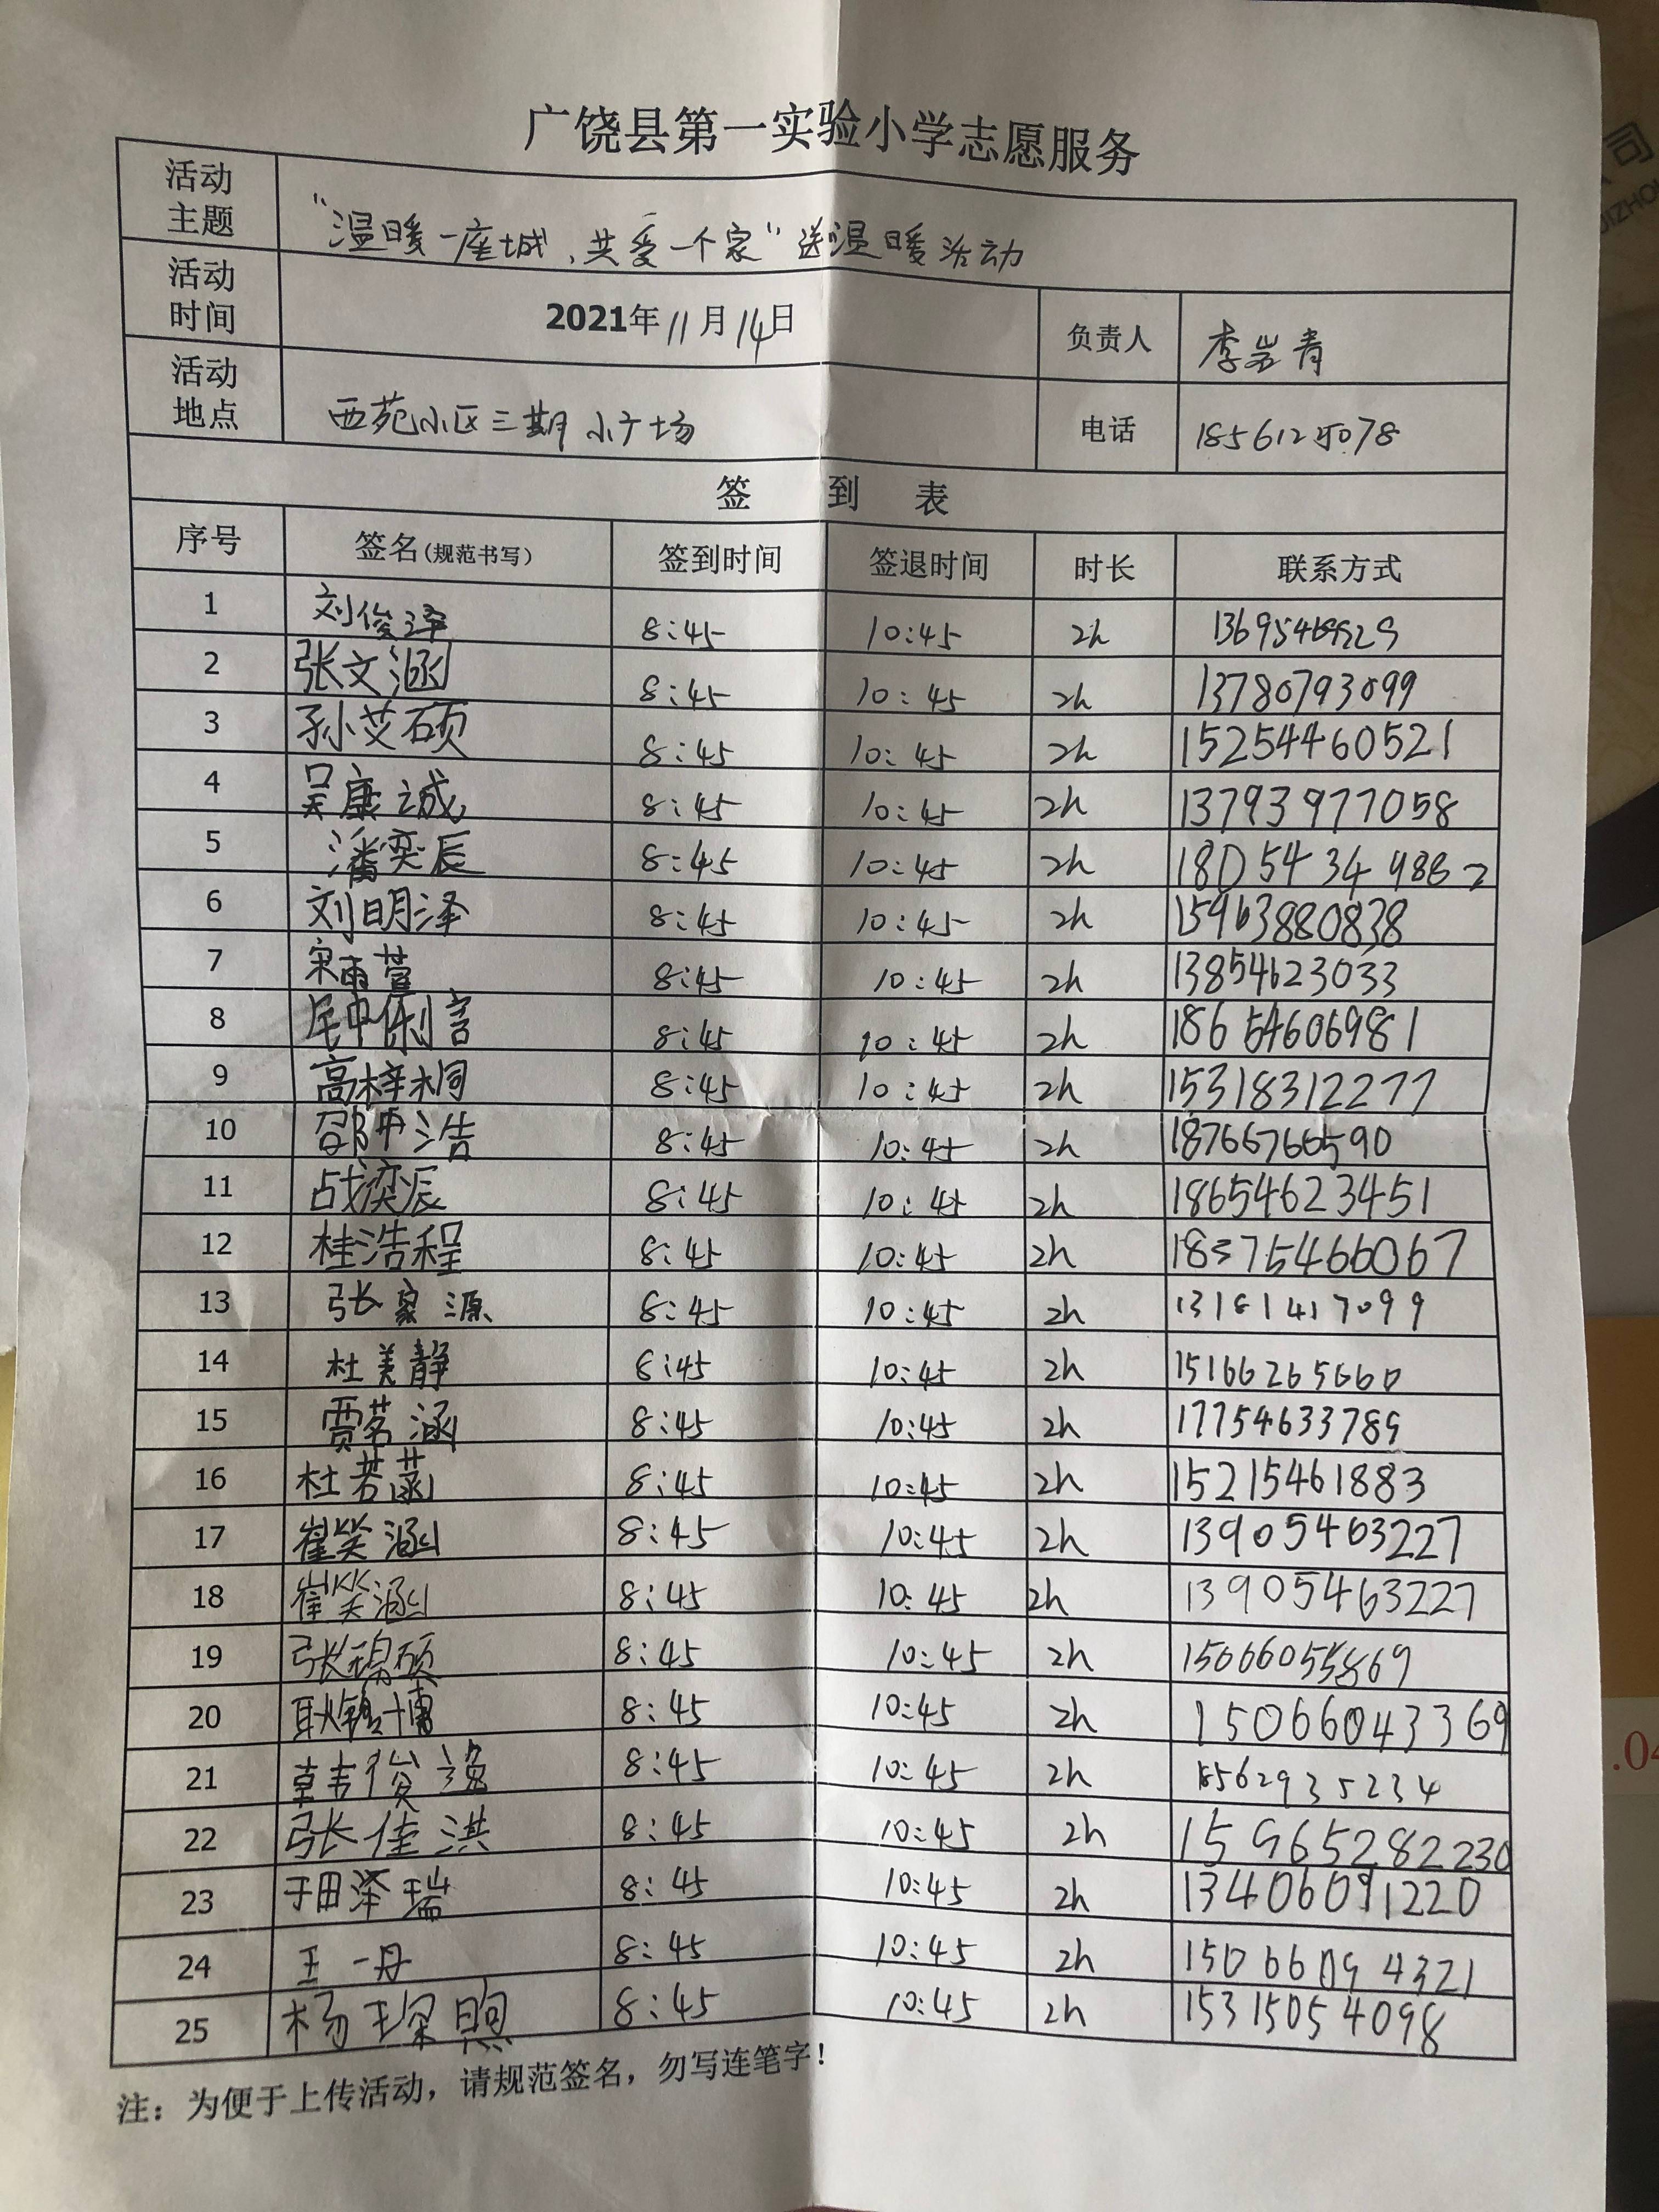 广饶县第一实验小学志愿服务
活动主题 "温暖一座城、共爱一个家"送温暖活动
活动时间 2021年11月14日 负责人 李岩青
活动地点 西苑小区三期小广场 电话
签到表
序号 签名(规范书写) 签到时间 签退时间 时长 联系方式
1 刘俊泽 8:45 10:45 2h
2 张文涵 8:45 10:45 2h 13780793099
3 孙艾硕 8:45 10:45 2h 15254460521
4 吴康诚 8:45 10:45 2h 13793977058
5 潘奕辰 8:45 10:45 2h
6 刘明泽 8:45 10:45 2h 15963880838
7 宋雨萱 8:45 10:45 2h 13854623033
8 8:45 10:45 2h 18654606981
9 高梓桐 8:45 10:45 2h 15318312277
10 8:45 10:45 2h 18766766590
11 战奕辰 8:45 10:45 2h 18654623451
12 桂浩程 8:45 10:45 2h
13 张家源 8:45 10:45 2h 13181417099
14 杜美静 8:45 10:45 2h 15166265660
15 贾茗涵 8:45 10:45 2h 17754633789
16 杜若菡 8:45 10:45 2h 15215461883
17 崔笑涵 8:45 10:45 2h 13905463227
18 崔笑涵 8:45 10:45 2h 13905463227
19 8:45 10:45 2h
20 8:45 10:45 2h 15066043369
21 8:45 10:45 2h 18562935234
22 张佳淇 8:45 10:45 2h 15965282230
23 于田泽瑞 8:45 10:45 2h 13406091220
24 王一丹 8:45 10:45 2h 15066094321
25 杨琛煦 8:45 10:45 2h 15315054098
注：为便于上传活动，请规范签名，勿写连笔字！